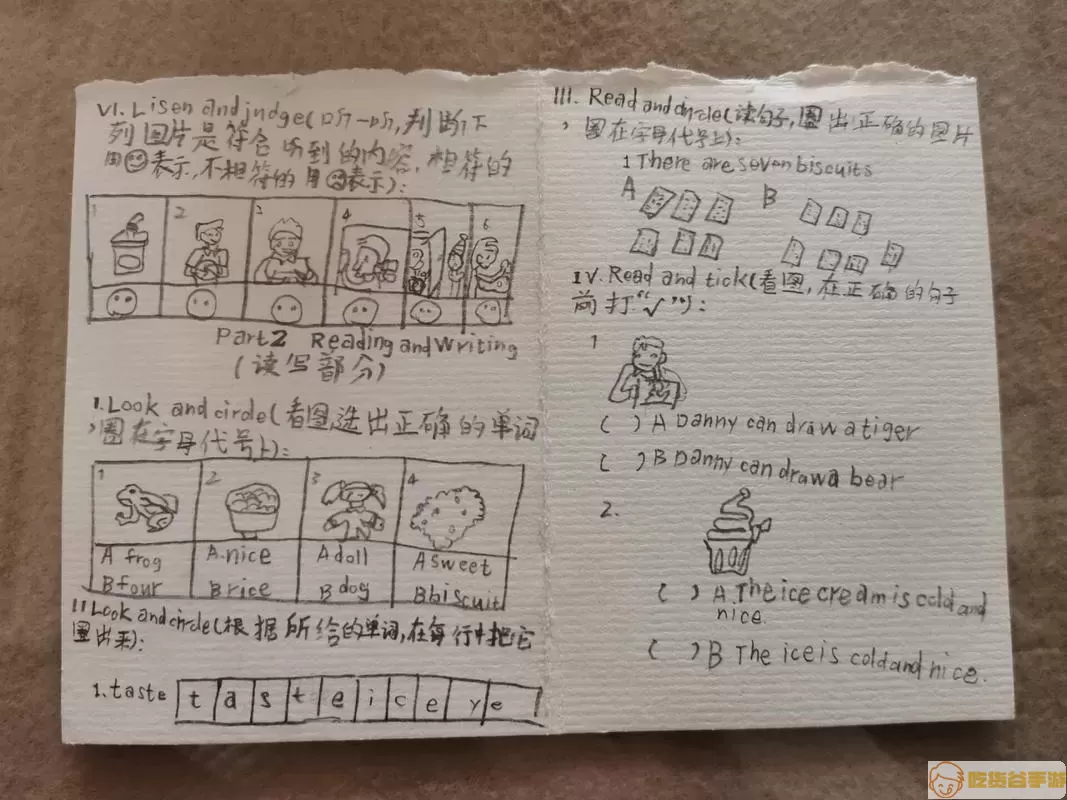 VI. Lisen and judge(听一听,判断下
列图片是符合听到的内容,相符的
用☺表示,不相符的用☹表示):
1 2 3 4 5 6
Part2 Reading and Writing
(读写部分)
I.Look and circle(看图,选出正确的单词
,圈在字母代号上):
1 2 3 4
A frog A.nice A doll A sweet
B four B rice B dog B biscuit
II Look and circle(根据所给的单词,在每行中把它
圈出来):
1.taste t a s t e i c e y e
III. Read and circle(读句子,圈出正确的图片
,圈在字母代号上):
1 There are seven biscuits
A B
IV. Read and tick(看图,在正确的句子
前打"√"):
1
( ) A Danny can draw a tiger
( ) B Danny can draw a bear
2.
( ) A.The ice cream is cold and
nice.
( ) B The ice is cold and nice.
吃货谷手游